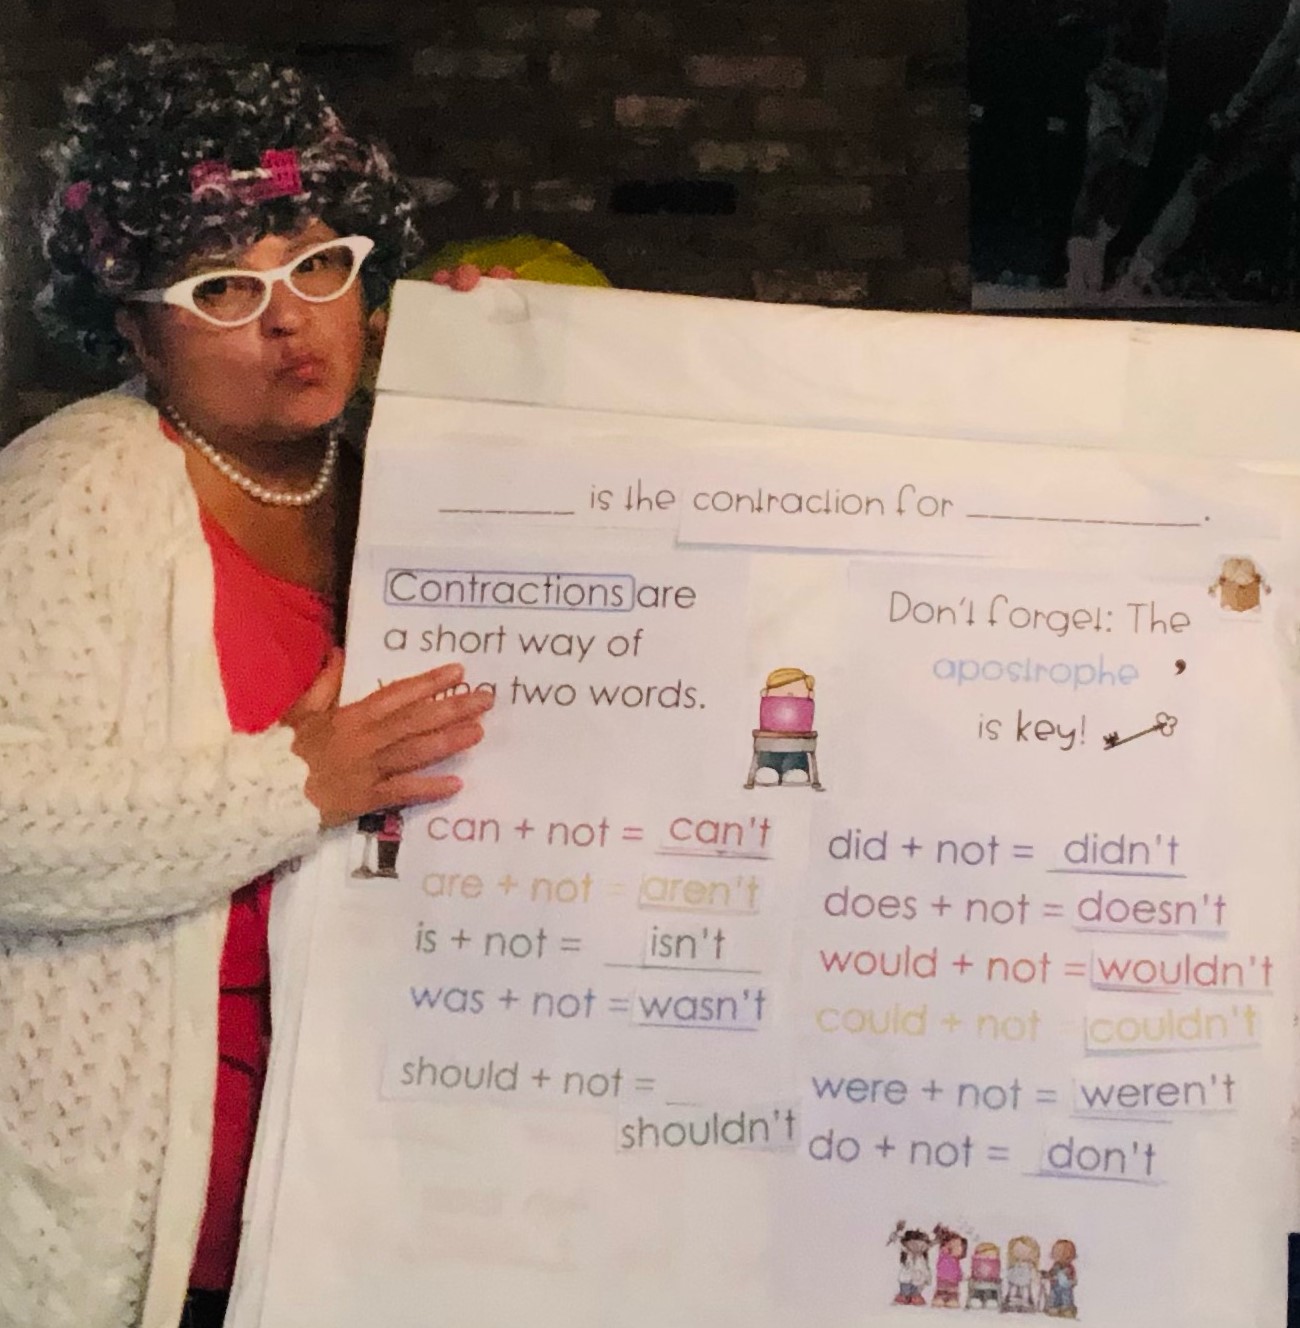 _______ is the contraction for ____________.
Contractions are
a short way of
two words.
Don't forget: The
apostrophe ,
is key!
can + not = can't
are + not = aren't
is + not = isn't
was + not = wasn't
should + not = __
shouldn't
did + not = didn't
does + not = doesn't
would + not = wouldn't
could + not = couldn't
were + not = weren't
do + not = don't